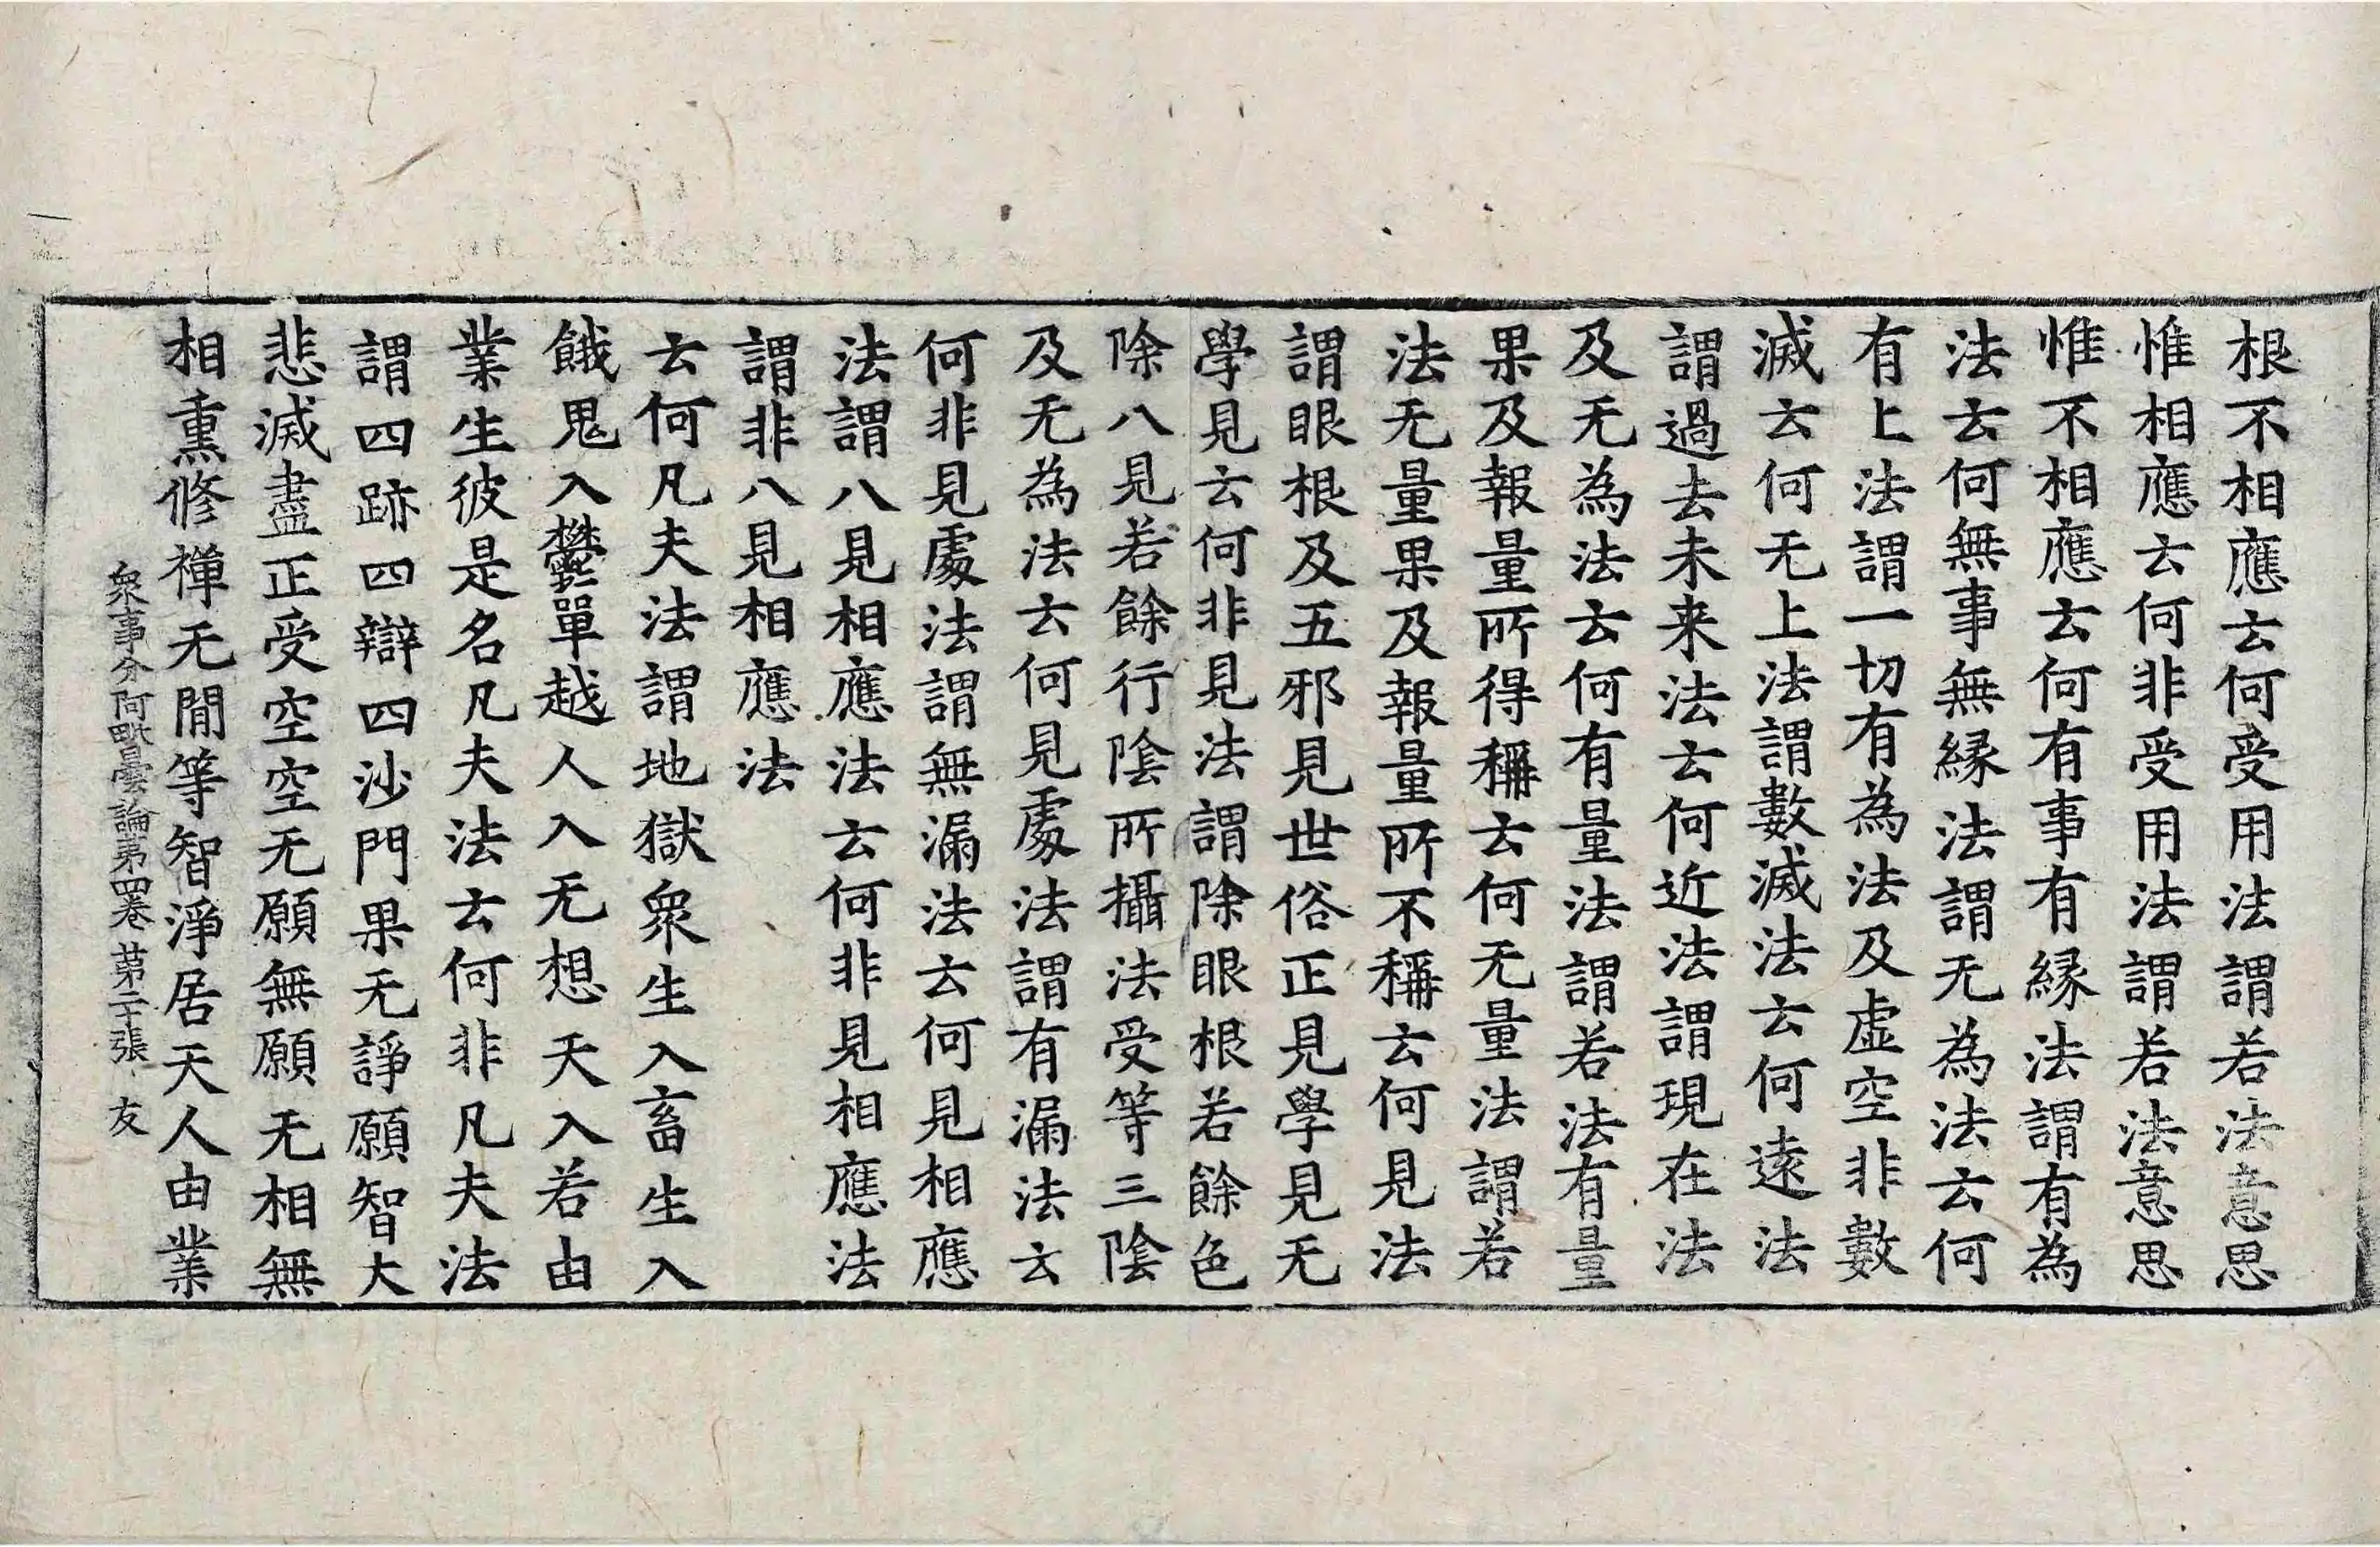 根不相應云何受用法謂若法意思
惟相應云何非受用法謂若法意思
惟不相應云何有事有縁法謂有為
法云何無事無縁法謂无為法云何
有上法謂一切有為法及虛空非數
滅云何无上法謂數滅法云何遠法
謂過去未来法云何近法謂現在法
及无為法云何有量法謂若法有量
果及報量所得稱云何无量法謂若
法无量果及報量所不稱云何見法
謂眼根及五邪見世俗正見學見无
學見云何非見法謂除眼根若餘色
除八見若餘行陰所攝法受等三陰
及无為法云何見處法謂有漏法云
何非見處法謂無漏法云何見相應
法謂八見相應法云何非見相應法
謂非八見相應法
云何凡夫法謂地獄衆生入畜生入
餓鬼入欝單越人入无想天入若由
業生彼是名凡夫法云何非凡夫法
謂四跡四辯四沙門果无諍願智大
悲滅盡正受空空无願無願无相無
相熏修禅无閒等智淨居天人由業
衆事分阿毗曇論第四卷 第二十張 友